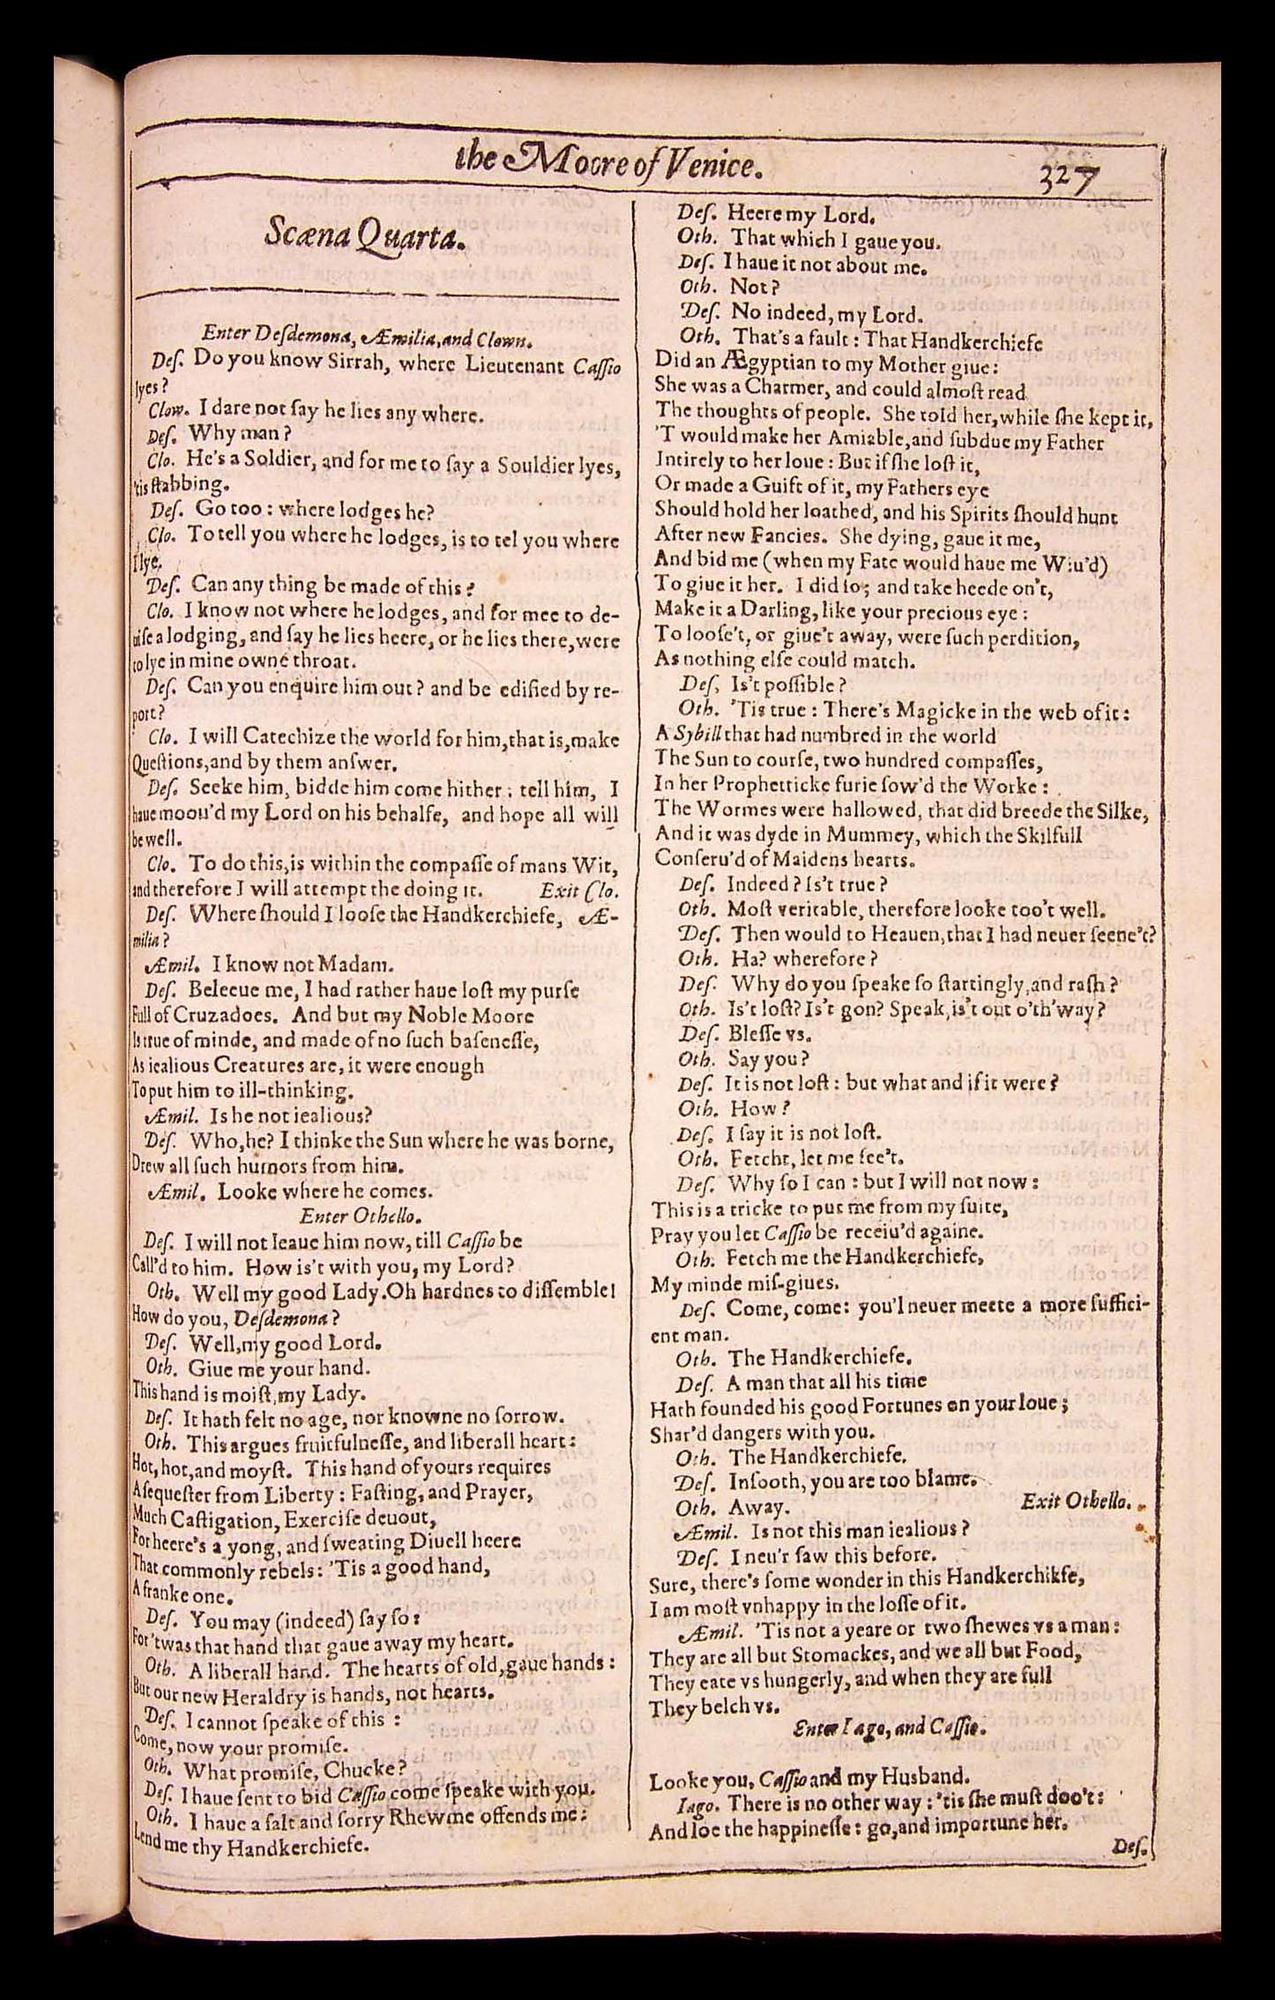 the Moore of Venice.
327
Scæna Quarta.
Enter Deſdemona, Æmilia, and Clown.
Deſ. Do you know Sirrah, where Lieutenant Caſſio
lyes?
Clow. I dare not ſay he lies any where.
Deſ. Why man?
Clo. He's a Soldier, and for me to ſay a Souldier lyes,
'tis ſtabbing.
Deſ. Go too: where lodges he?
Clo. To tell you where he lodges, is to tel you where
I lye.
Deſ. Can any thing be made of this?
Clo. I know not where he lodges, and for mee to de-
uiſe a lodging, and ſay he lies heere, or he lies there, were
to lye in mine owne throat.
Deſ. Can you enquire him out? and be edified by re-
port?
Clo. I will Catechize the world for him, that is, make
Queſtions, and by them anſwer.
Deſ. Seeke him, bidde him come hither: tell him, I
haue moou'd my Lord on his behalfe, and hope all will
be well.
Clo. To do this, is within the compaſſe of mans Wit,
and therefore I will attempt the doing it. Exit Clo.
Deſ. Where ſhould I looſe the Handkerchiefe, Æ-
milia?
Æmil. I know not Madam.
Deſ. Beleeue me, I had rather haue loſt my purſe
Full of Cruzadoes. And but my Noble Moore
Is true of minde, and made of no ſuch baſeneſſe,
As iealious Creatures are, it were enough
To put him to ill-thinking.
Æmil. Is he not iealious?
Deſ. Who, he? I thinke the Sun where he was borne,
Drew all ſuch humors from him.
Æmil. Looke where he comes.
Enter Othello.
Deſ. I will not leaue him now, till Caſſio be
Call'd to him. How is't with you, my Lord?
Oth. Well my good Lady. Oh hardnes to diſſemble!
How do you, Deſdemona?
Deſ. Well, my good Lord.
Oth. Giue me your hand.
This hand is moiſt, my Lady.
Deſ. It hath felt no age, nor knowne no ſorrow.
Oth. This argues fruitfulneſſe, and liberall heart:
Hot, hot, and moyſt. This hand of yours requires
A ſequeſter from Liberty: Faſting, and Prayer,
Much Caſtigation, Exerciſe deuout,
For heere's a yong, and ſweating Diuell heere
That commonly rebels: 'Tis a good hand,
A franke one.
Deſ. You may (indeed) ſay ſo:
For 'twas that hand that gaue away my heart.
Oth. A liberall hand. The hearts of old, gaue hands:
But our new Heraldry is hands, not hearts.
Deſ. I cannot ſpeake of this:
Come, now your promiſe.
Oth. What promiſe, Chucke?
Deſ. I haue ſent to bid Caſſio come ſpeake with you.
Oth. I haue a ſalt and ſorry Rhewme offends me:
Lend me thy Handkerchiefe.
Deſ. Heere my Lord.
Oth. That which I gaue you.
Deſ. I haue it not about me.
Oth. Not?
Deſ. No indeed, my Lord.
Oth. That's a fault: That Handkerchiefe
Did an Ægyptian to my Mother giue:
She was a Charmer, and could almoſt read
The thoughts of people. She told her, while ſhe kept it,
'T would make her Amiable, and ſubdue my Father
Intirely to her loue: But if ſhe loſt it,
Or made a Guift of it, my Fathers eye
Should hold her loathed, and his Spirits ſhould hunt
After new Fancies. She dying, gaue it me,
And bid me (when my Fate would haue me Wiu'd)
To giue it her. I did ſo; and take heede on't,
Make it a Darling, like your precious eye:
To looſe't, or giue't away, were ſuch perdition,
As nothing elſe could match.
Deſ. Is't poſſible?
Oth. 'Tis true: There's Magicke in the web of it:
A Sybill that had numbred in the world
The Sun to courſe, two hundred compaſſes,
In her Prophetticke furie ſow'd the Worke:
The Wormes were hallowed, that did breede the Silke,
And it was dyde in Mummey, which the Skilfull
Conſeru'd of Maidens hearts.
Deſ. Indeed? Is't true?
Oth. Moſt veritable, therefore looke too't well.
Deſ. Then would to Heauen, that I had neuer ſeene't?
Oth. Ha? wherefore?
Deſ. Why do you ſpeake ſo ſtartingly, and raſh?
Oth. Is't loſt? Is't gon? Speak, is't out o'th' way?
Deſ. Bleſſe vs.
Oth. Say you?
Deſ. It is not loſt: but what and if it were?
Oth. How?
Deſ. I ſay it is not loſt.
Oth. Fetcht, let me ſee't.
Deſ. Why ſo I can: but I will not now:
This is a tricke to put me from my ſuite,
Pray you let Caſſio be receiu'd againe.
Oth. Fetch me the Handkerchiefe,
My minde miſ-giues.
Deſ. Come, come: you'l neuer meete a more ſuffici-
ent man.
Oth. The Handkerchiefe.
Deſ. A man that all his time
Hath founded his good Fortunes on your loue;
Shar'd dangers with you.
Oth. The Handkerchiefe.
Deſ. Inſooth, you are too blame.
Oth. Away. Exit Othello.
Æmil. Is not this man iealious?
Deſ. I neu'r ſaw this before.
Sure, there's ſome wonder in this Handkerchikfe,
I am moſt vnhappy in the loſſe of it.
Æmil. 'Tis not a yeare or two ſhewes vs a man:
They are all but Stomackes, and we all but Food,
They eate vs hungerly, and when they are full
They belch vs.
Enter Iago, and Caſſio.
Looke you, Caſſio and my Husband.
Iago. There is no other way: 'tis ſhe muſt doo't:
And loe the happineſſe: go, and importune her.
Deſ.